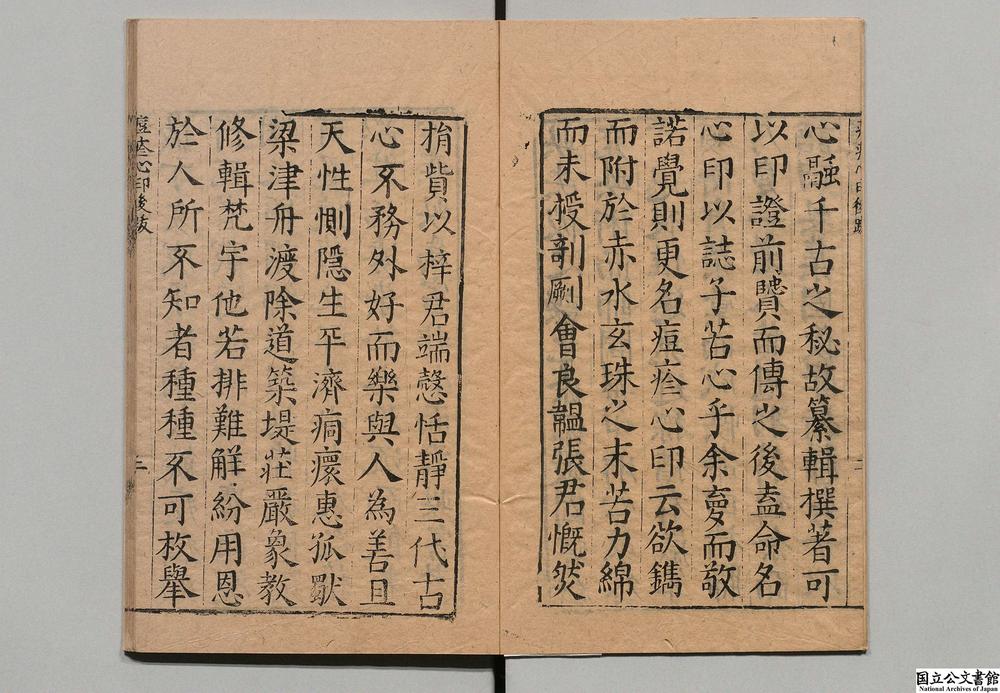 心融千古之秘故纂輯撰著可
以印證前贒而傳之後盍命名
心印以誌子苦心乎余夣而敬
諾覺則更名痘疹心印云欲鐫
而附於赤水玄珠之末苦力綿
而未授剞劂會良韞張君慨然
捐貲以梓君端慤恬靜三代古
心不務外好而樂與人為善且
天性惻隱生平濟痌瘝惠孤獸
梁津舟渡除道築堤莊嚴象教
修輯梵宇他若排難解紛用恩
於人所不知者種種不可枚舉
痘疹心印後跋 二
国立公文書館
National Archives of Japan